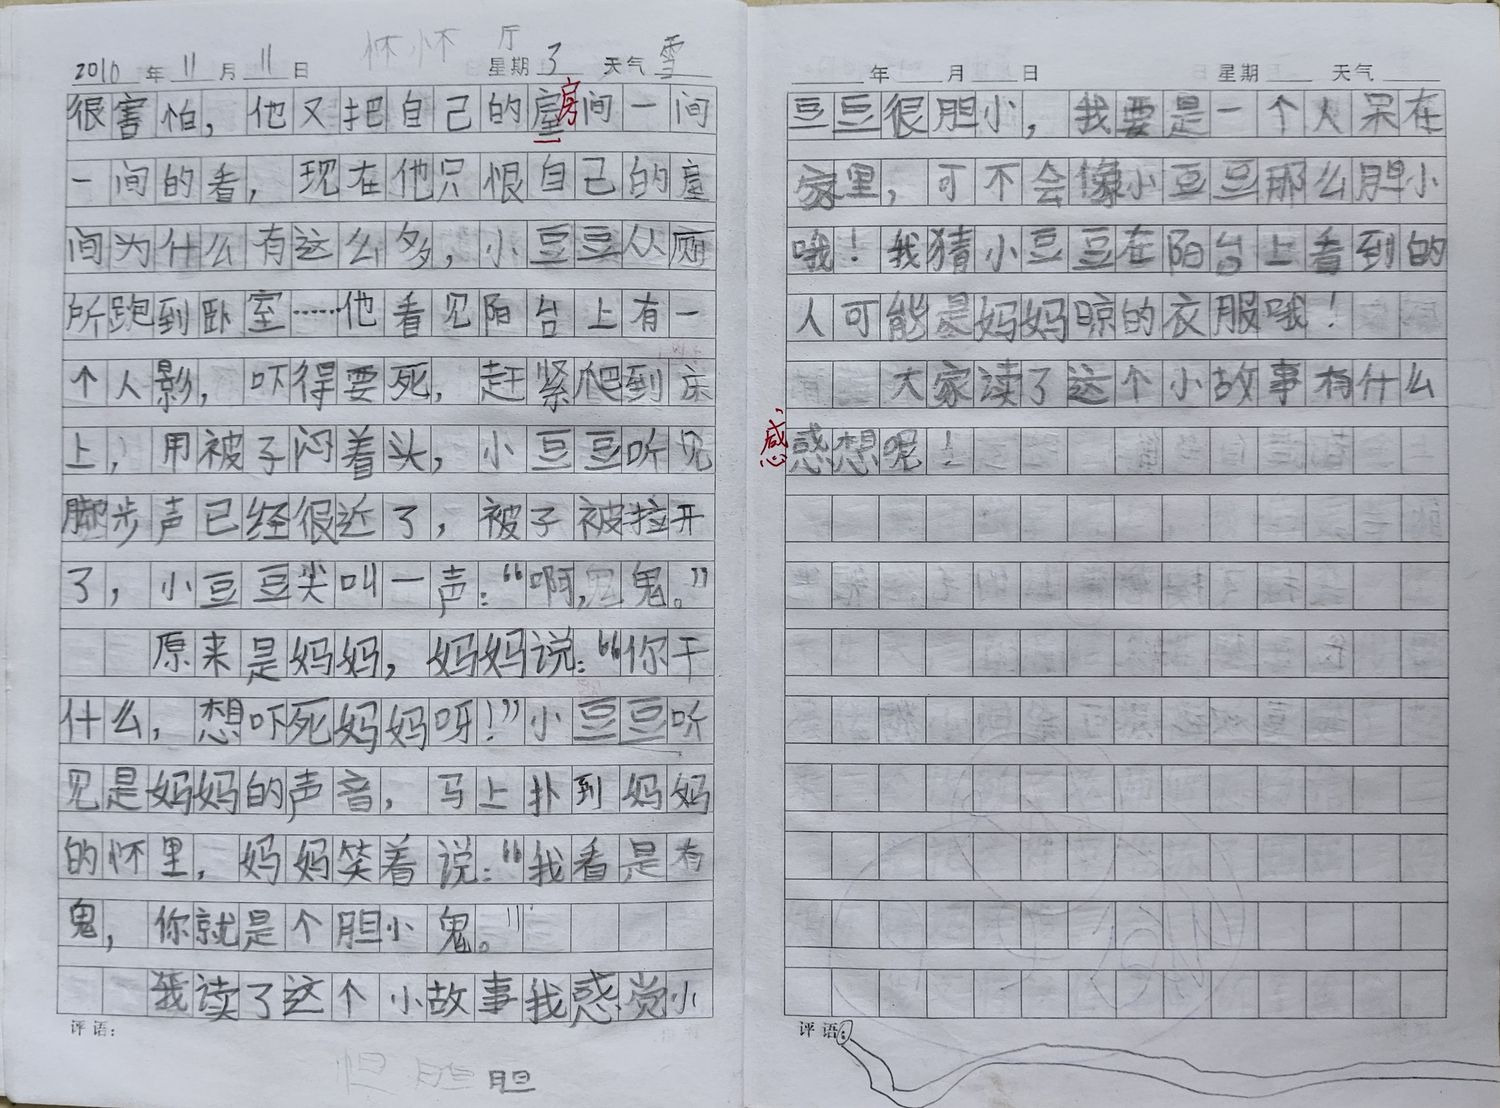 怀 怀 厅
2010 年 11 月 11 日 星期 3 天气 雪
很害怕，他又把自己的房间一间
一间的看，现在他只恨自己的
间为什么有这么多，小豆豆从厕
所跑到卧室……他看见阳台上有一
个人影，吓得要死，赶紧爬到床
上，用被子闷着头，小豆豆听见
脚步声已经很近了，被子被拉开
了，小豆豆尖叫一声：“啊，鬼鬼。”
原来是妈妈，妈妈说：“你干
什么，想吓死妈妈呀！”小豆豆听
见是妈妈的声音，马上扑到妈妈
的怀里，妈妈笑着说：“我看是有
鬼，你就是个胆小鬼。”
我读了这个小故事我感觉小
评语：
胆
年 月 日 星期 天气
豆豆很胆小，我要是一个人呆在
家里，可不会像小豆豆那么胆小
哦！我猜小豆豆在阳台上看到的
人可能是妈妈晾的衣服哦！
大家读了这个小故事有什么
感 惑想呢！
评语：